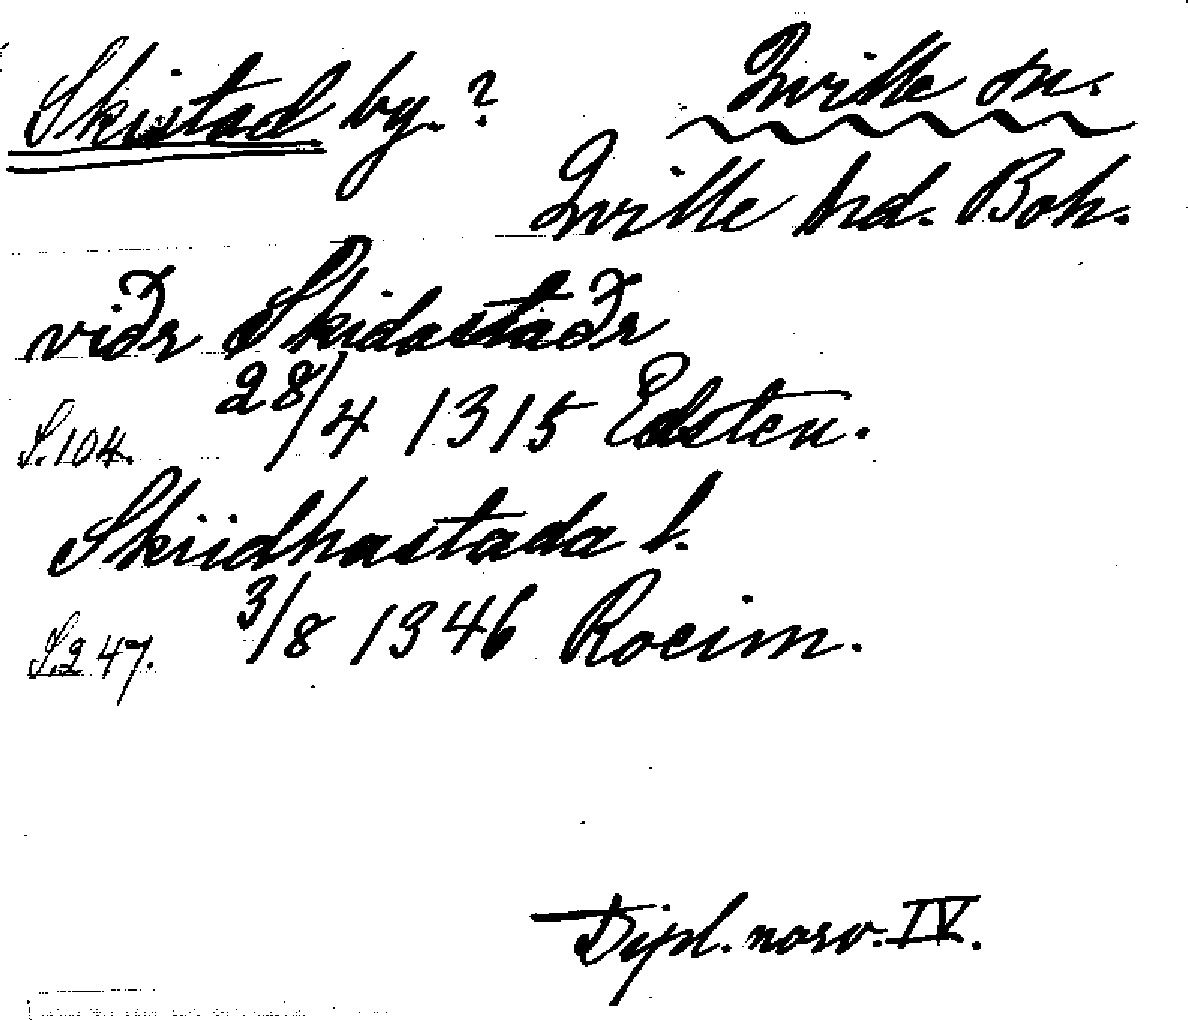 Skistad by.? Qville sn.
Qville hd. Boh.
viðr Skidastaðr
S.104. 28/4 1315 Edsten.
Skiidhastada l.
S.247. 3/8 1346 Rocim.
Dipl. norv. IV.